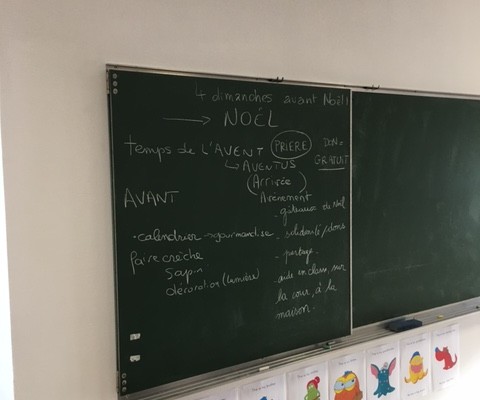 4 dimanches avant Noël!
→ NOËL
temps de L'AVENT PRIERE DON =
GRATUIT
↳ AVENTUS
(Arrivée)
Avènement
AVANT
- gâteaux de Noël
- calendrier → gourmandise
- solidarité/dons
Faire crèche
- partage
sapin
- aide en classe, sur
décoration (lumière)
la cour, à la
maison.